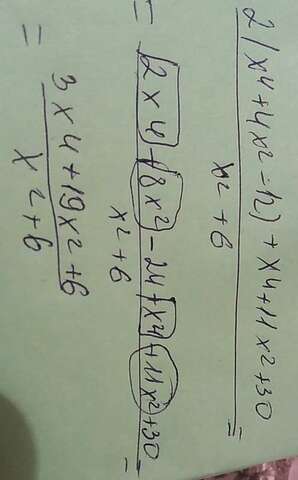 2(x⁴+4x²-12)+x⁴+11x²+30 =
x²+6
= 2x⁴+8x²-24+x⁴+11x²+30 =
x²+6
= 3x⁴+19x²+6
x²+6